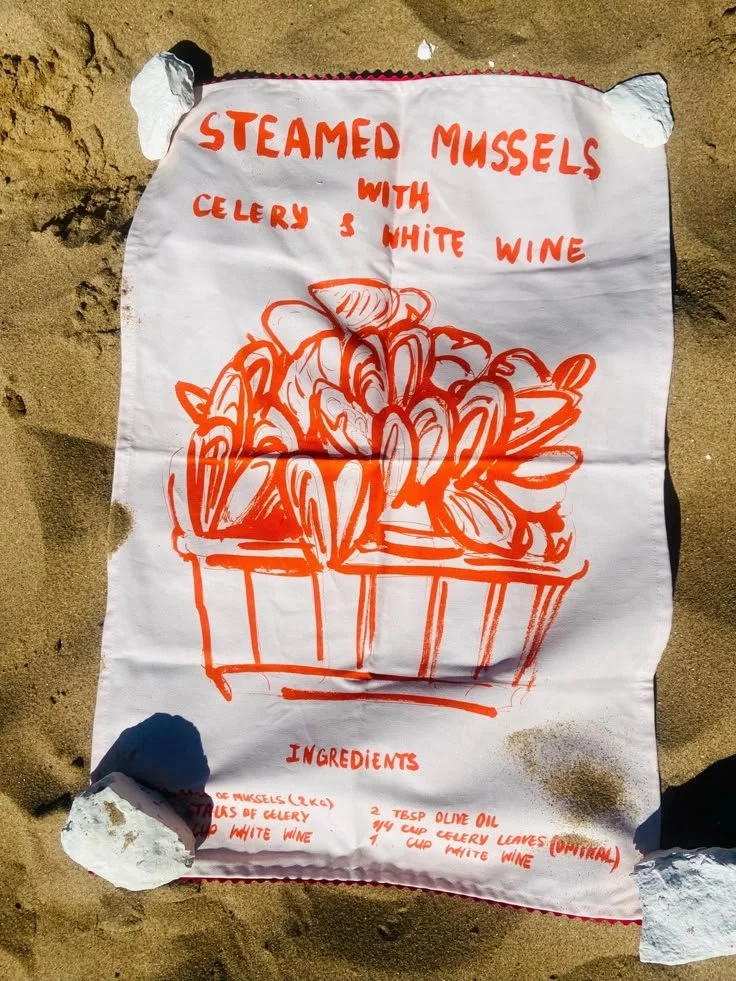 STEAMED MUSSELS
WITH
CELERY & WHITE WINE
INGREDIENTS
OF MUSSELS (2KG)
STALKS OF CELERY
CUP WHITE WINE
2 TBSP OLIVE OIL
1/4 CUP CELERY LEAVES (OPTIONAL)
1 CUP WHITE WINE